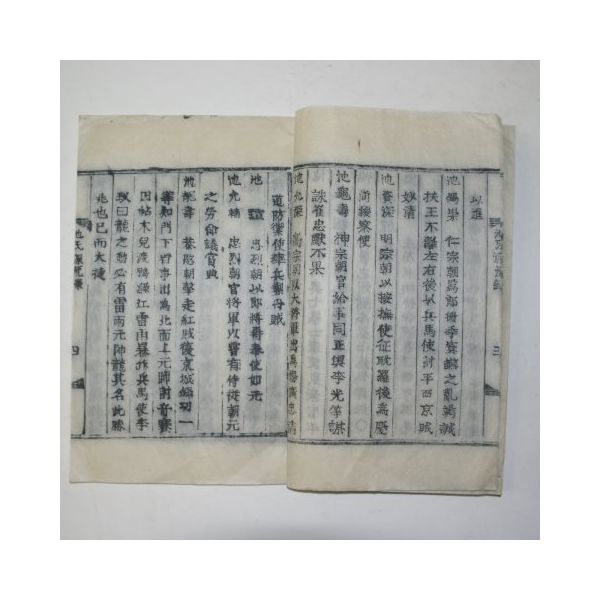 以進
池祿崇 仁宗朝爲郎將李資謙之亂竭誠
扶王不離左右後以兵馬使討平西京賊
妙清
池資深 明宗朝以按撫使征耽羅後爲慶
尙按察使
池龜壽 神宗朝官給事同正與李光等謀
誅崔忠獻不果
池允深 高宗朝以大將軍出爲楊廣忠清
道防禦使率兵剿丹賊
池 忠烈朝以郎將奉使如元
池允輔 忠烈朝官將軍以嘗有侍從朝元
之勞命議賞典
池龍壽 恭愍朝擊走紅賊復京城錄功一
等知門下四事出爲北面上元帥討奇賽
因帖木兒渡鴨綠江雷雨暴作兵馬使李
曰龍之動必有雷雨元帥龍其名此勝
兆也已而大捷
池氏 四
三